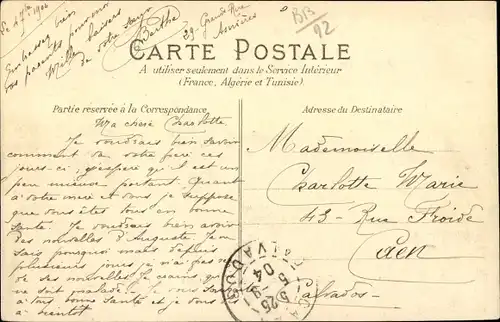 29 Grande Rue
Asnières
BB
92
Embrasse bien
vos parents pour moi
Mille baisers
de votre sœur
Berthe
CARTE POSTALE
A utiliser seulement dans le Service Intérieur
(France, Algérie et Tunisie).
Partie réservée à la Correspondance
Adresse du Destinataire
Ma chère Charlotte
Je voudrais bien savoir
comment va votre frère ces
jours-ci j'espère qu'il est un
peu mieux portant. Quant
à votre mère et vous je suppose
que vous êtes tous en bonne
santé. Je voudrais bien avoir
des nouvelles d'Auguste
sais pourquoi mais depuis
plusieurs jours je n'ai pas
de ses nouvelles Je crains qu'il
ne soit malade. Je vous
à tous bonne santé et je dis
à bientôt
Mademoiselle
Charlotte Marie
43 - Rue Froide
Caen
Calvados
CALVADOS